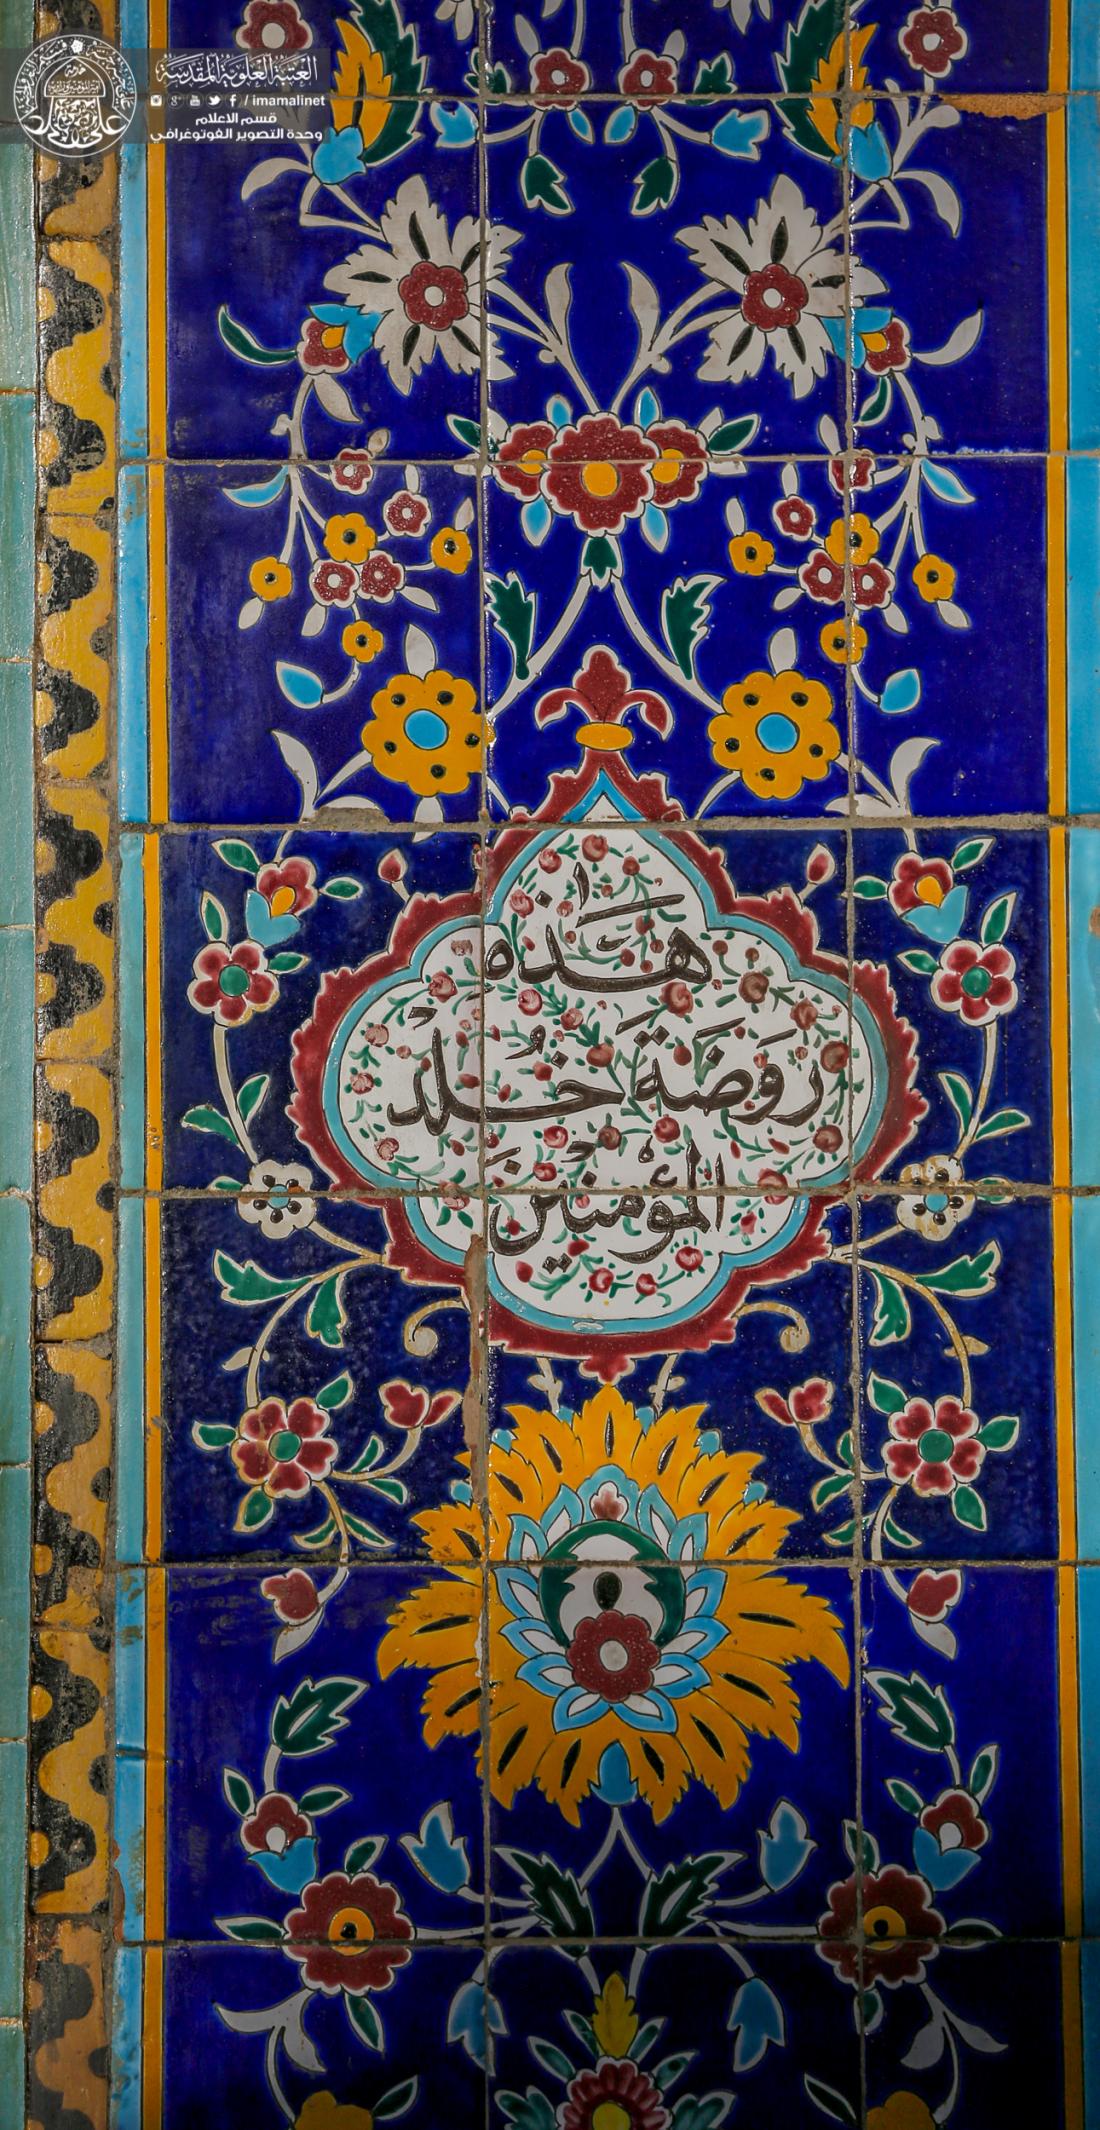 العتبة العلوية المقدسة
/ imamalinet
قسم الاعلام
وحدة التصوير الفوتوغرافي
هذه
روضة خلد
المؤمنين